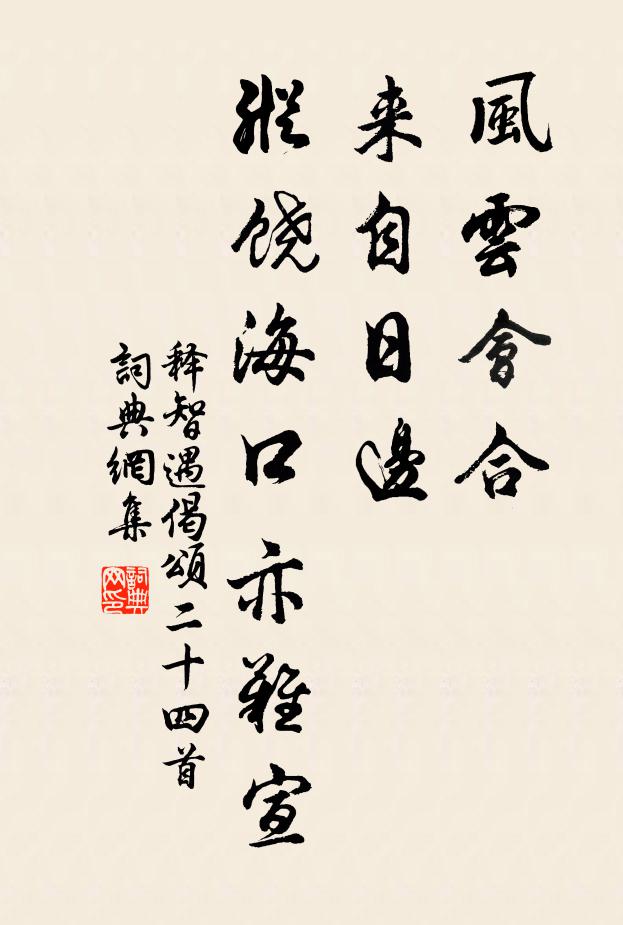 風雲會合
来自日邊
縱饶海口亦難宣
释智遇偈頌二十四首
詞典網集
詞典
网印